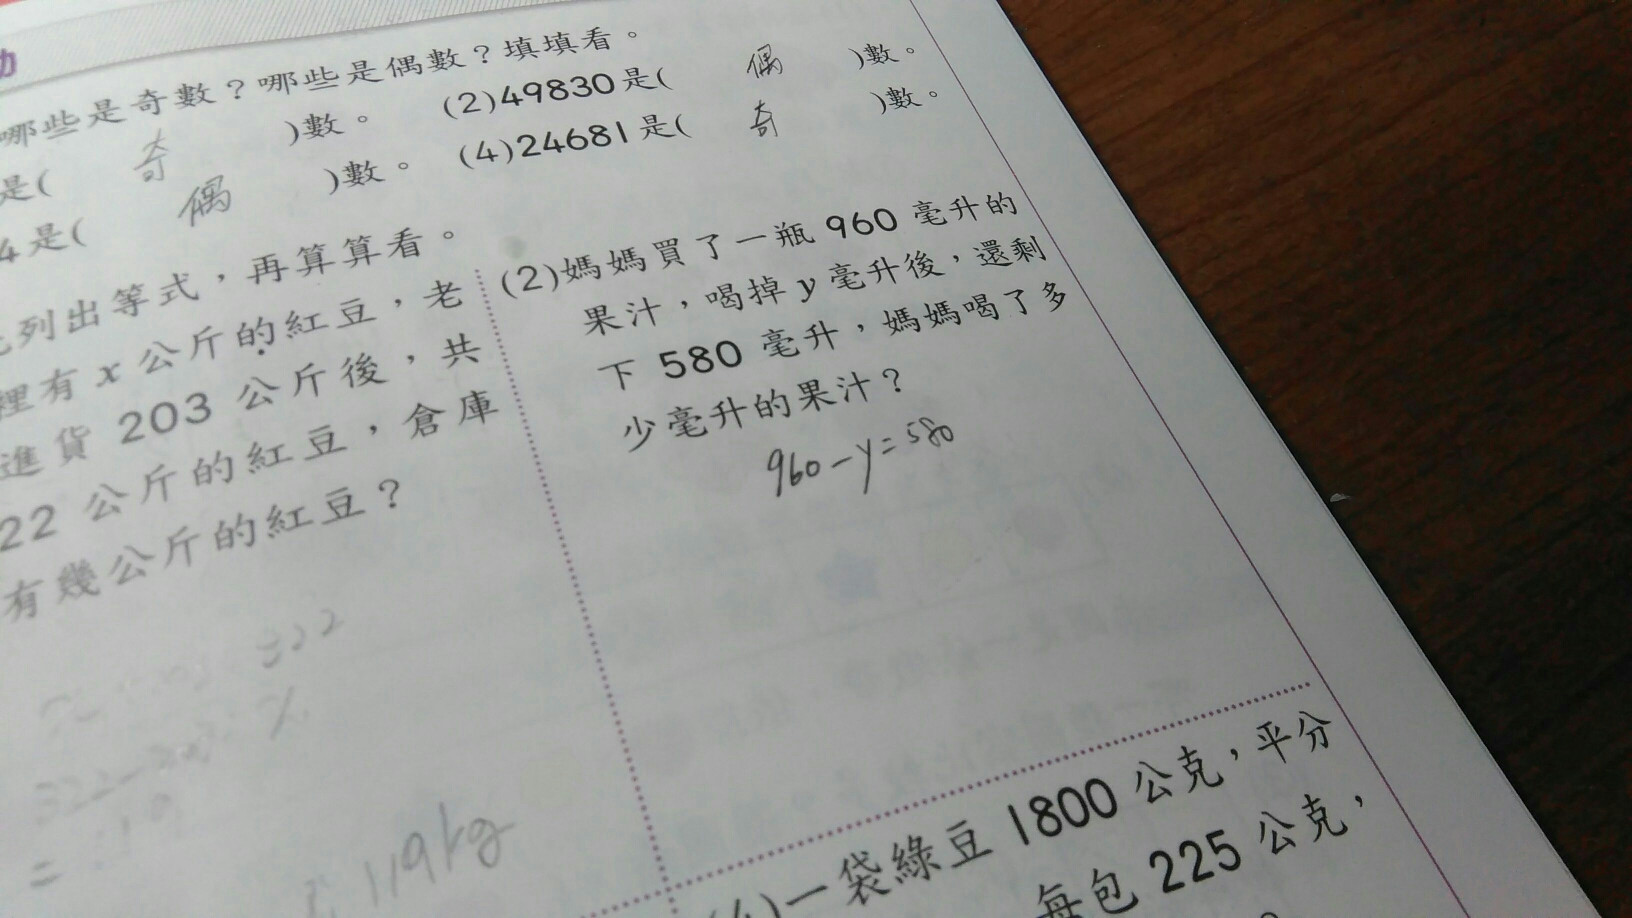 哪些是奇數？哪些是偶數？填填看。
是( 奇 )數。 (2)49830是( 偶 )數。
4是( 偶 )數。 (4)24681是( 奇 )數。
列出等式，再算算看。
裡有 x 公斤的紅豆，老
進貨 203 公斤後，共
22 公斤的紅豆，倉庫
有幾公斤的紅豆？
=322
322-
=
119kg
(2)媽媽買了一瓶 960 毫升的
果汁，喝掉 y 毫升後，還剩
下 580 毫升，媽媽喝了多
少毫升的果汁？
960-y=580
(4)一袋綠豆 1800 公克，平分
每包 225 公克，